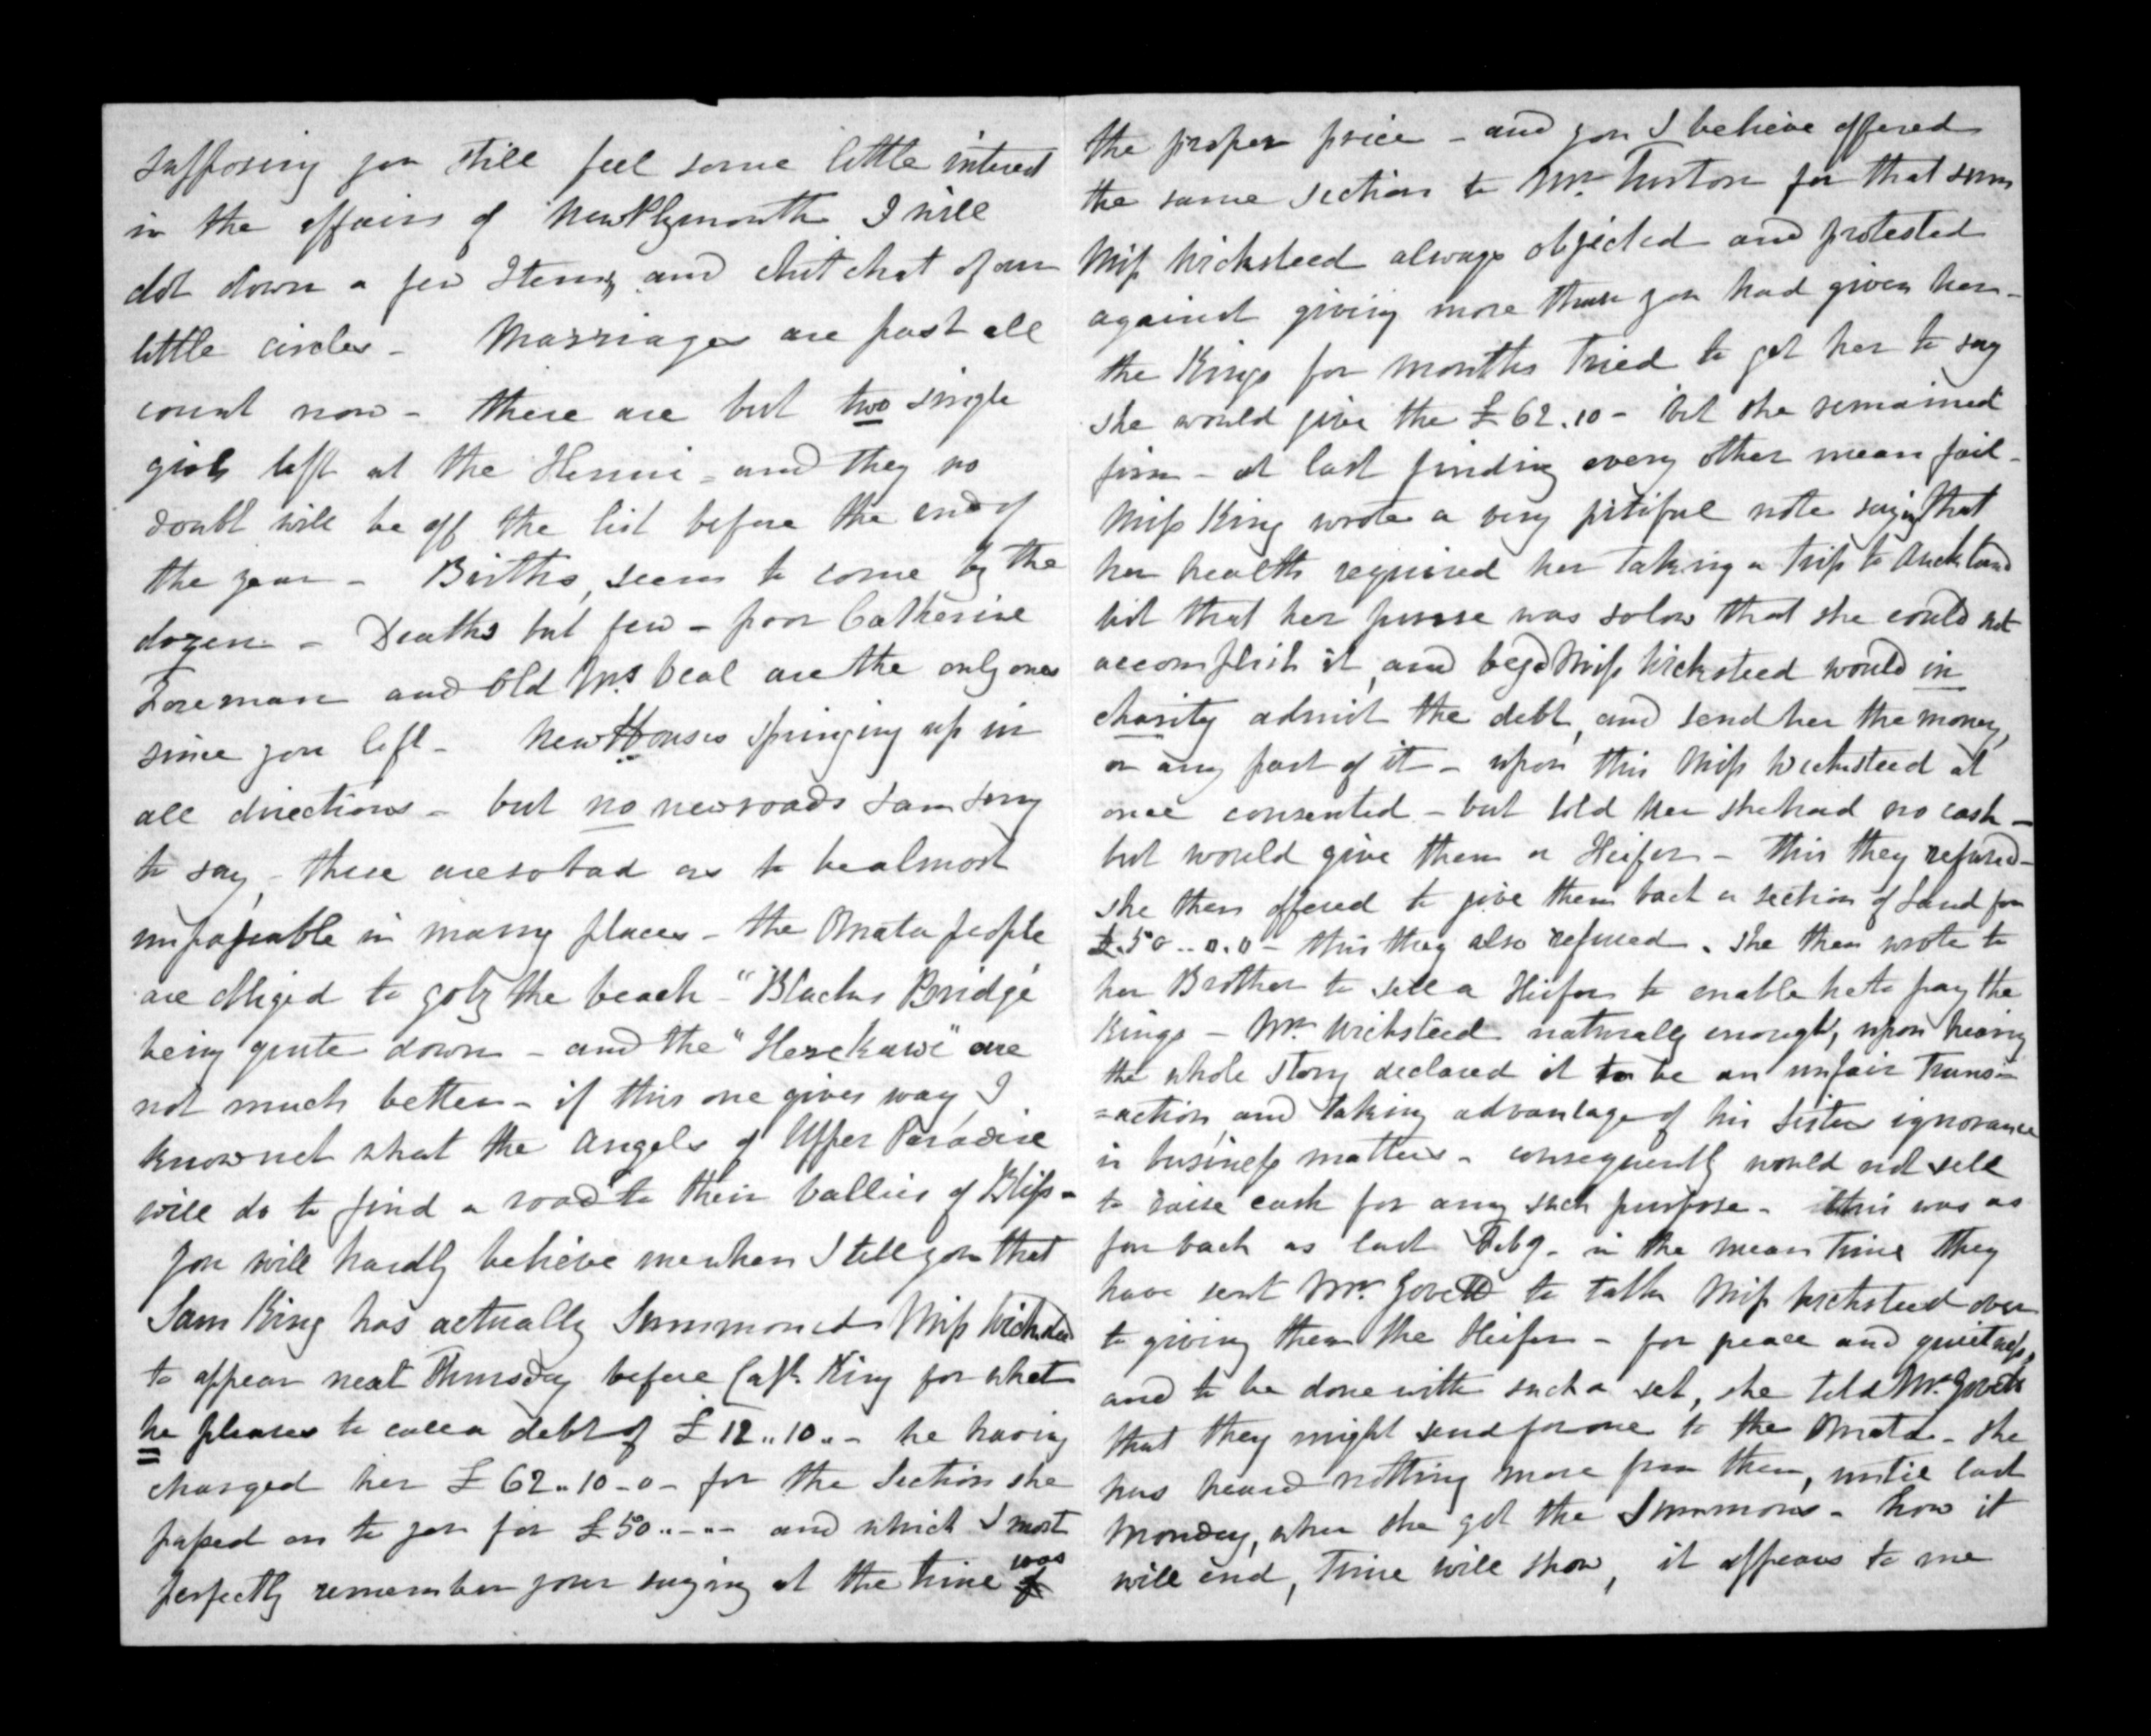 supposing you still feel some little interest
in the affairs of New Plymouth I will
dot down a few Items, and chit chat of our
little circles - Marriages are past all
count now - there are but two single
girls left at the Henui - and they no
doubt will be off the list before the end of
the year - Births, seem to come by the
dozen - Deaths but few - poor Catherine
Foreman and Old Mrs Veal are the only ones
since you left - New Houses springing up in
all directions - but no new roads I am sorry
to say, - these are so bad as to be almost
impassable in many places - the Omata people
are obliged to go by the beach - "Blacks Bridge"
being quite down - and the "Herekawi" are
not much better - if this one gives way, I
know not what the Angels of Upper Paradise
will do to find a road to their Vallies of Bliss -
You will hardly believe me when I tell you that
Sam King has actually Summoned Miss Wicksteed
to appear next Thursday before Capt. King for what
he pleases to call a debt of £12..10..- he having
charged her £62..10-0- for the Section she
passed on to you for £50..-..- and which I most
perfectly remember your saying at the time was
the proper price - and you I believe offered
the same section to Mr. Turton for that sum
Miss Wicksteed always objected and protested
against giving more than you had given her -
the Kings for months tried to get her to say
she would give the £62.10- but she remained
firm - at last finding every other mean fail -
Miss King wrote a very pitiful note saying that
her health required her taking a trip to Auckland
but that her purse was so low that she could not
accomplish it, and begd Miss Wicksteed would in
charity admit the debt, and send her the money,
or any part of it - upon this Miss Wicksteed at
once consented - but told her she had no cash -
but would give them a Heifer - this they refused -
she then offered to give them back a section of Land for
£50..0.0 - this they also refused. she then wrote to
her Brother to sell a Heifer to enable her to pay the
Kings - Mr. Wicksteed naturally enough, upon hearing
the whole story declared it to be an unfair trans=
=action, and taking advantage of his Sisters ignorance
in business matters - consequently would not sell
to raise cash for any such purpose - this was as
far back as last Feby. in the mean time they
have sent Mr. Govett to talk Miss Wicksteed over
to giving them the Heifer - for peace and quietness,
and to be done with such a set, she told Mr. Govett
that they might send for one to the Omata - she
has heard nothing more from them, until last
Monday, when she got the Summons - how it
will end, time will show, it appears to me